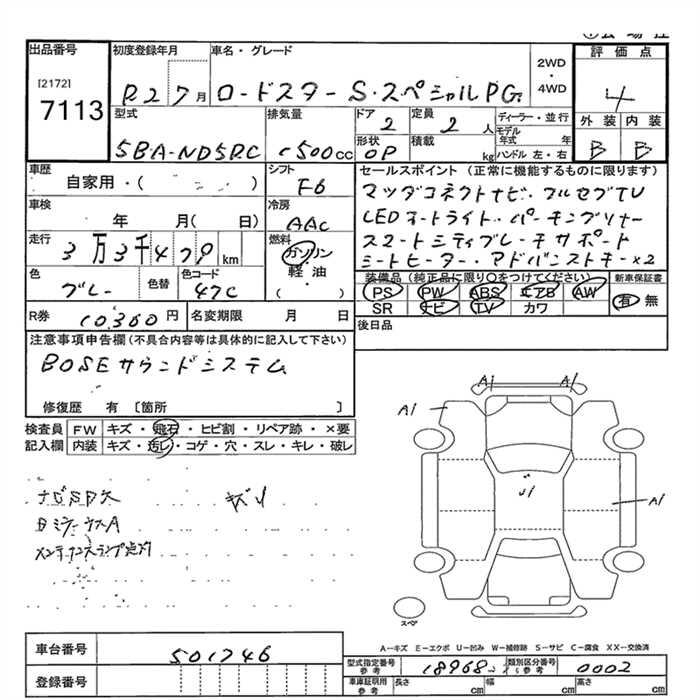 出品番号
[2172]
7113
初度登録年月
R2 7月
車名・グレード
ロードスター S・スペシャルPG
2WD
・
4WD
評価点
4
外装 内装
B B
型式
5BA-ND5RC
排気量
1500cc
ドア
2
定員
2人
ディーラー・並行
モデル年式 年
形状
OP
積載
kg
ハンドル 左・右
車歴
自家用・( )
シフト
F6
セールスポイント(正常に機能するものに限ります)
マツダコネクトナビ・フルセグTV
LEDオートライト・パーキングソナー
スマートシティブレーキサポート
シートヒーター・アドバンストキー×2
車検
年 月( 日)
冷房
AAC
走行
3万3千479km
燃料
ガソリン
・
軽・油
( )
色
ブルー
色替
色コード
47C
装備品(純正品に限り○をつけてください)
PS PW ABS エアB AW
SR ナビ TV カワ
新車保証書
有 無
R券
10,360円
名変期限 月 日
後日品
注意事項申告欄(不具合内容等は具体的に記入して下さい)
BOSEサウンドシステム
修復歴 有 〔箇所 〕
検査員
記入欄
FW キズ・飛石・ヒビ割・リペア跡・×要
内装 キズ・汚レ・コゲ・穴・スレ・キレ・破レ
ナビSD欠
メンテナンスランプ点灯
A1 A1
A1
U1
A1
スペア
A―キズ E―エクボ U―凹み W―補修跡 S―サビ C―腐食 XX―交換済
車台番号
501746
登録番号
型式指定番号
参考
18968
類別区分番号
参考
0002
車庫証明用
参考
長さ cm
幅 cm
高さ cm